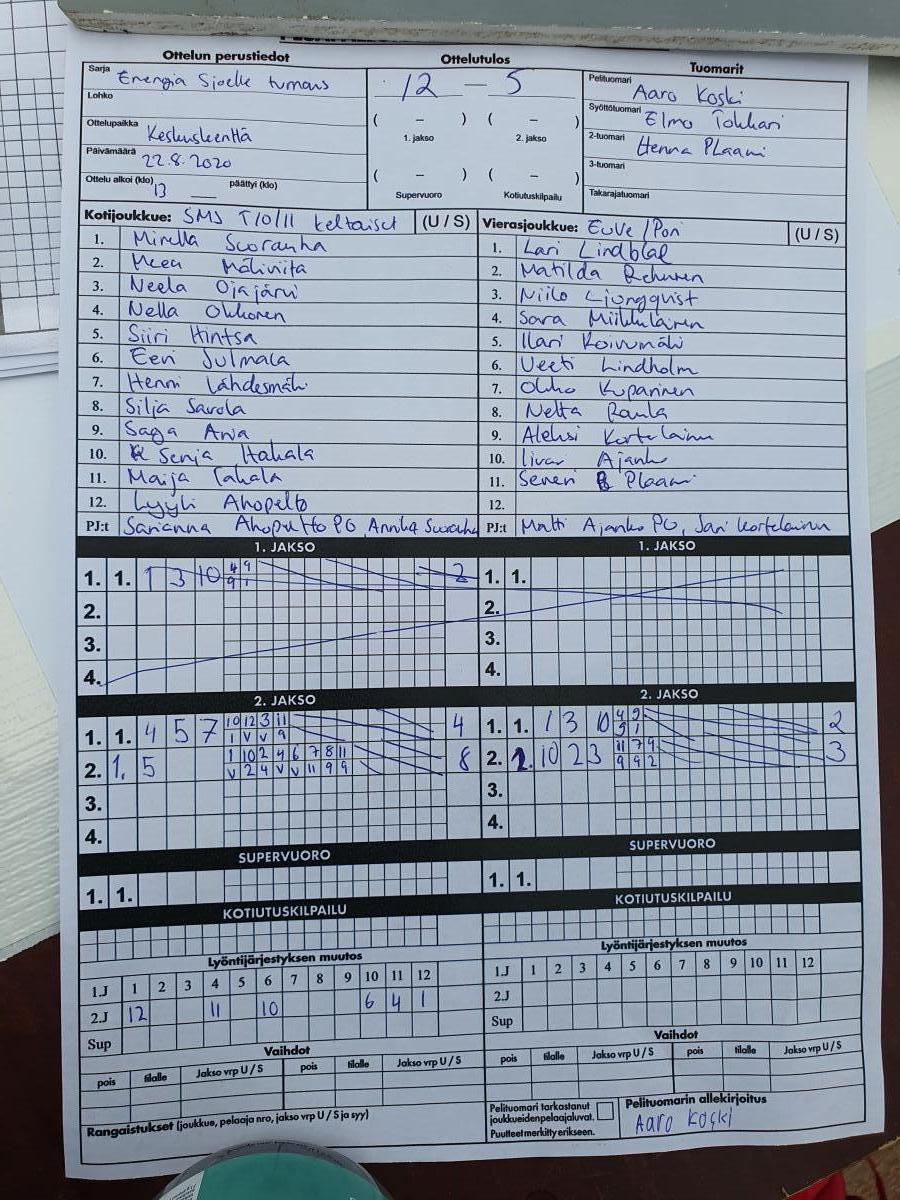 Ottelun perustiedot
Ottelutulos
Tuomarit
Sarja
Energia Sjoelle turnaus
Lohko
Ottelupaikka
Keskuskenttä
Päivämäärä
22.8.2020
Ottelu alkoi (klo) 13 päättyi (klo)
12 – 5
( – ) ( – )
1. jakso 2. jakso
( – ) ( – )
Supervuoro Kotiutuskilpailu
Pelituomari
Aaro Koski
Syöttötuomari
Elmo Tokkari
2-tuomari
Henna Plaami
3-tuomari
Takarajatuomari
Kotijoukkue: SMJ T/0/11 keltaiset (U / S)
1. Mirella Suoranha
2. Meea Mälinitä
3. Neela Ojajärvi
4. Nella Okkonen
5. Siiri Hintsa
6. Eevi Julmala
7. Henni Lähdesmäki
8. Silja Savola
9. Saga Arva
10. Senja Hakala
11. Maija Takala
12. Lyyli Ahopelto
PJ:t Sarianna Ahopelto PG, Annika
Vierasjoukkue: EuVe / Pori (U / S)
1. Lari Lindblad
2. Matilda Rekunen
3. Niilo Ljungqvist
4. Sara Miikkulainen
5. Ilari Koivumäki
6. Veeti Lindholm
7. Okko Kuparinen
8. Netta Raula
9. Aleksi Kortelainen
10. Iivar Ajanko
11. Severi Plaami
12.
PJ:t Matti Ajanko PG, Jari Kortelainen
1. JAKSO 1. JAKSO
1. 1. 1 3 10 4 9 2
9 1
2.
3.
4.
1. 1.
2.
3.
4.
2. JAKSO 2. JAKSO
1. 1. 4 5 7 10 12 3 11 4
1 V V 9
2. 1. 5 1 10 2 4 6 7 8 11 8
V 2 4 V V 11 9 9
3.
4.
1. 1. 1 3 10 4 9 2
9 1
2. 1. 10 2 3 11 7 9 3
9 9 2
3.
4.
SUPERVUORO SUPERVUORO
1. 1. 1. 1.
KOTIUTUSKILPAILU KOTIUTUSKILPAILU
Lyöntijärjestyksen muutos
1.J 1 2 3 4 5 6 7 8 9 10 11 12
2.J 12 11 10 6 4 1
Sup
Vaihdot
pois tilalle Jakso vrp U / S pois tilalle Jakso vrp U / S
Rangaistukset (joukkue, pelaaja nro, jakso vrp U / S ja syy)
Lyöntijärjestyksen muutos
1.J 1 2 3 4 5 6 7 8 9 10 11 12
2.J
Sup
Vaihdot
pois tilalle Jakso vrp U / S pois tilalle Jakso vrp U / S
Pelituomari tarkastanut
joukkueidenpelaajaluvat.
Puutteet merkitty erikseen.
Pelituomarin allekirjoitus
Aaro Koski